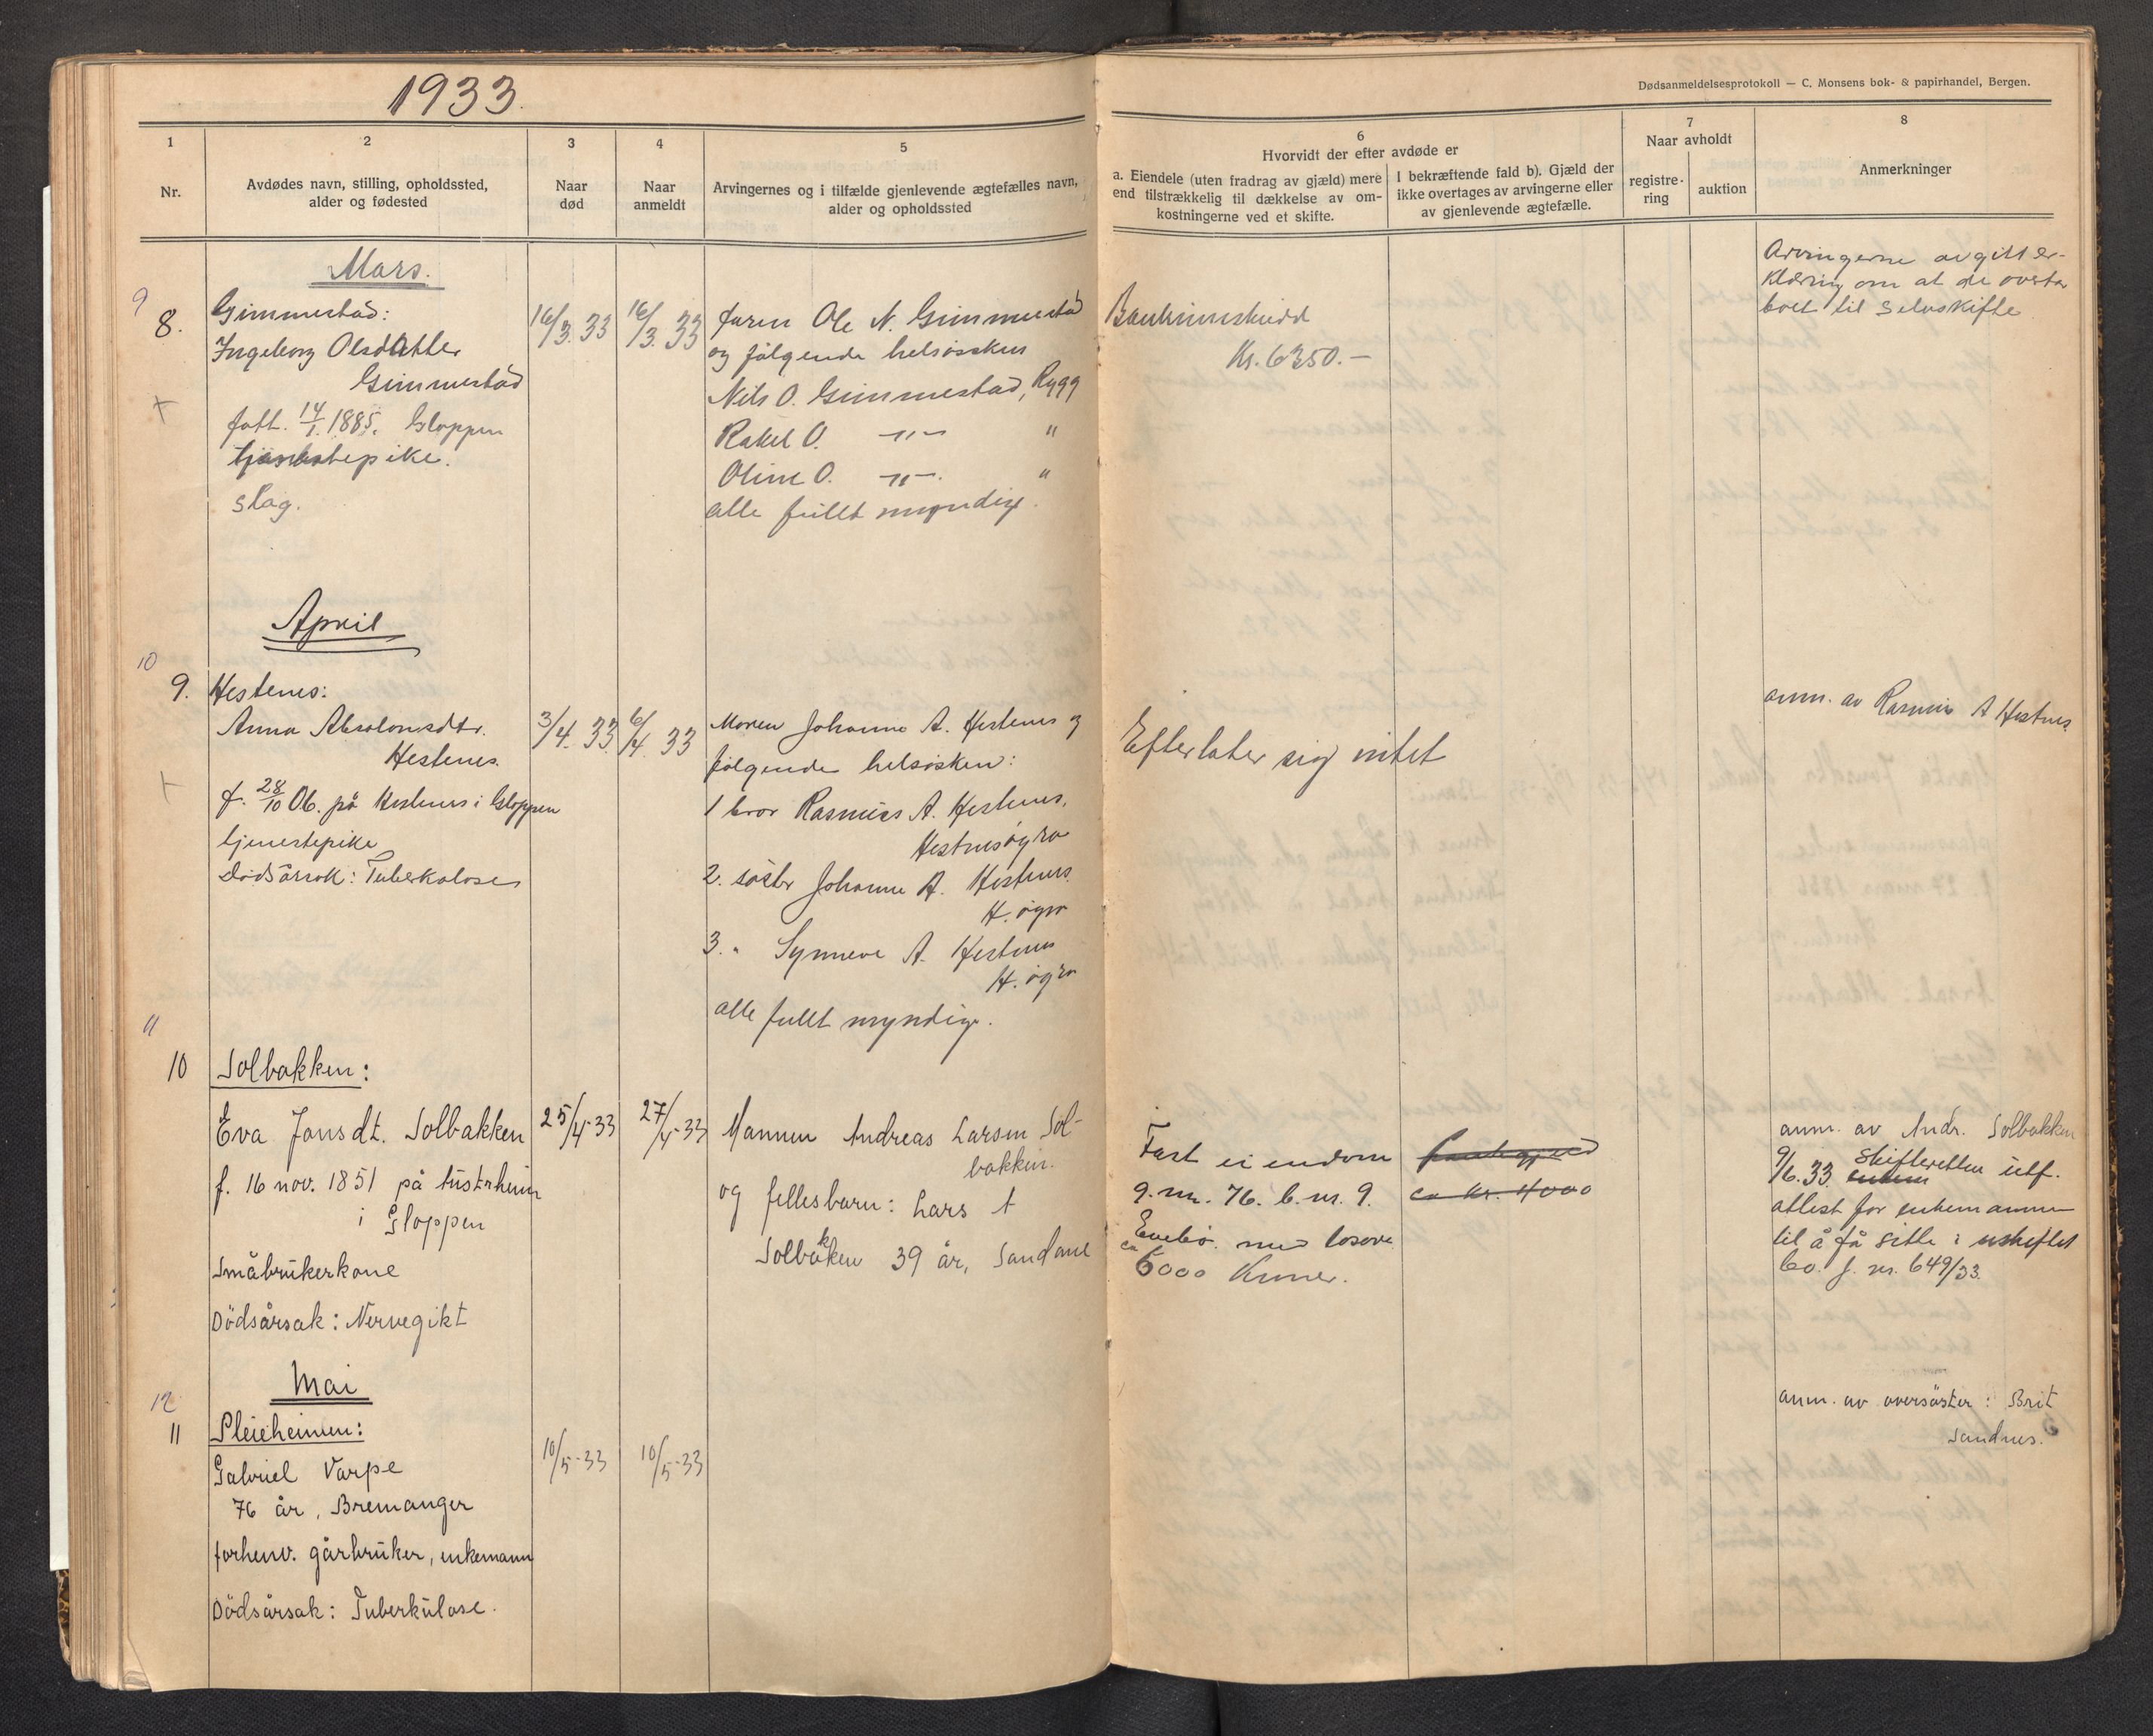 1933.
Dødsanmeldelsesprotokoll — C. Monsens bok- & papirhandel, Bergen.
1
Nr.
2
Avdødes navn, stilling, opholdssted,
alder og fødested
3
Naar
død
4
Naar
anmeldt
5
Arvingernes og i tilfælde gjenlevende ægtefælles navn,
alder og opholdssted
6
Hvorvidt der efter avdøde er
a. Eiendele (uten fradrag av gjæld) mere
end tilstrækkelig til dækkelse av om-
kostningerne ved et skifte.
I bekræftende fald b). Gjæld der
ikke overtages av arvingerne eller
av gjenlevende ægtefælle.
7
Naar avholdt
registre-
ring
auktion
8
Anmerkninger
Mars.
9
8.
Gimmestad:
Ingeborg Olsdatter
Gimmestad
født. 14/1. 1885. Gloppen
tjenestepike.
slag.
16/3. 33
16/3. 33
faren Ole N. Gimmestad
og følgende helsøsken
Nils O. Gimmestad, Rygg
Rakel O. —"— "
Oline O. —"—. "
alle fullt myndige.
Bankinnskudd
Kr. 6350.—
Arvingerne avgitt er-
klæring om at de overtar
boet til selvskifte
April
10
9.
Hestenes:
Anna Absalonsdtr.
Hestenes.
f. 28/10 06. på Hestenes i Gloppen
tjenestepike
dødsårsak: Tuberkulose
3/4. 33
6/4. 33
Moren Johanne A. Hestenes og
følgende helsøsken:
1 bror Rasmus A. Hestenes,
Hestnesøyra
2. søster Johanne A. Hestenes.
H. øyra
3. " Synneve A. Hestenes
H. øyra
alle fullt myndige.
Efterlater sig intet
anm. av Rasmus A Hestnes.
11
10
Solbakken:
Eva Jonsdt. Solbakken
f. 16 nov. 1851 på Austrheim
i Gloppen
Småbrukerkone
Dödsårsak: Nervegikt
25/4-33
27/4-33
Mannen Andreas Larsen Sol-
bakken.
og fellesbarn: Lars A
Solbakken 39 år, Sandane
Fast eiendom
g. nr. 76. b. nr. 9.
Evebø. med løsøre
ca 6000 Kroner.
ca kr. 4000
anm. av Andr. Solbakken
9/6. 33. skifteretten utf.
attest for enkemannen
til å få sitte i uskiftet
bo. j. nr. 649/33.
Mai
12
11
Pleieheimen:
Gabriel Varpe
76 år, Bremanger
forhenv. gårbruker, enkemann
Dödsårsak: Tuberkulose.
10/5-33
10/5-33
anm. av oversöster: Brit
Sandnes.